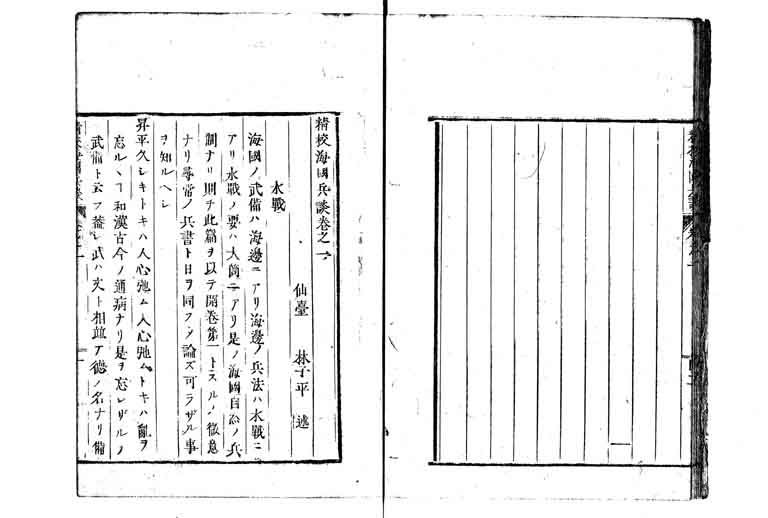 精校海國兵談卷之一
仙臺　林子平　述
水戰
海國ノ武備ハ海邊ニアリ海邊ノ兵法ハ水戰ニ
アリ水戰ノ要ハ大筒ニアリ是ノ海國自然ノ兵
制ナリ則チ此篇ヲ以テ開卷第一トスルノ微意
ナリ尋常ノ兵書ト日ヲ同フシテ論ズ可ラザル事
ヲ知ルヘシ
昇平久シキトキハ人心弛ム人心弛ムトキハ亂ヲ
忘ルヽヿ和漢古今ノ通病ナリ是ヲ忘レザルノ
武備ト云フ蓋シ武ハ文ト相並テ德ノ名ナリ備